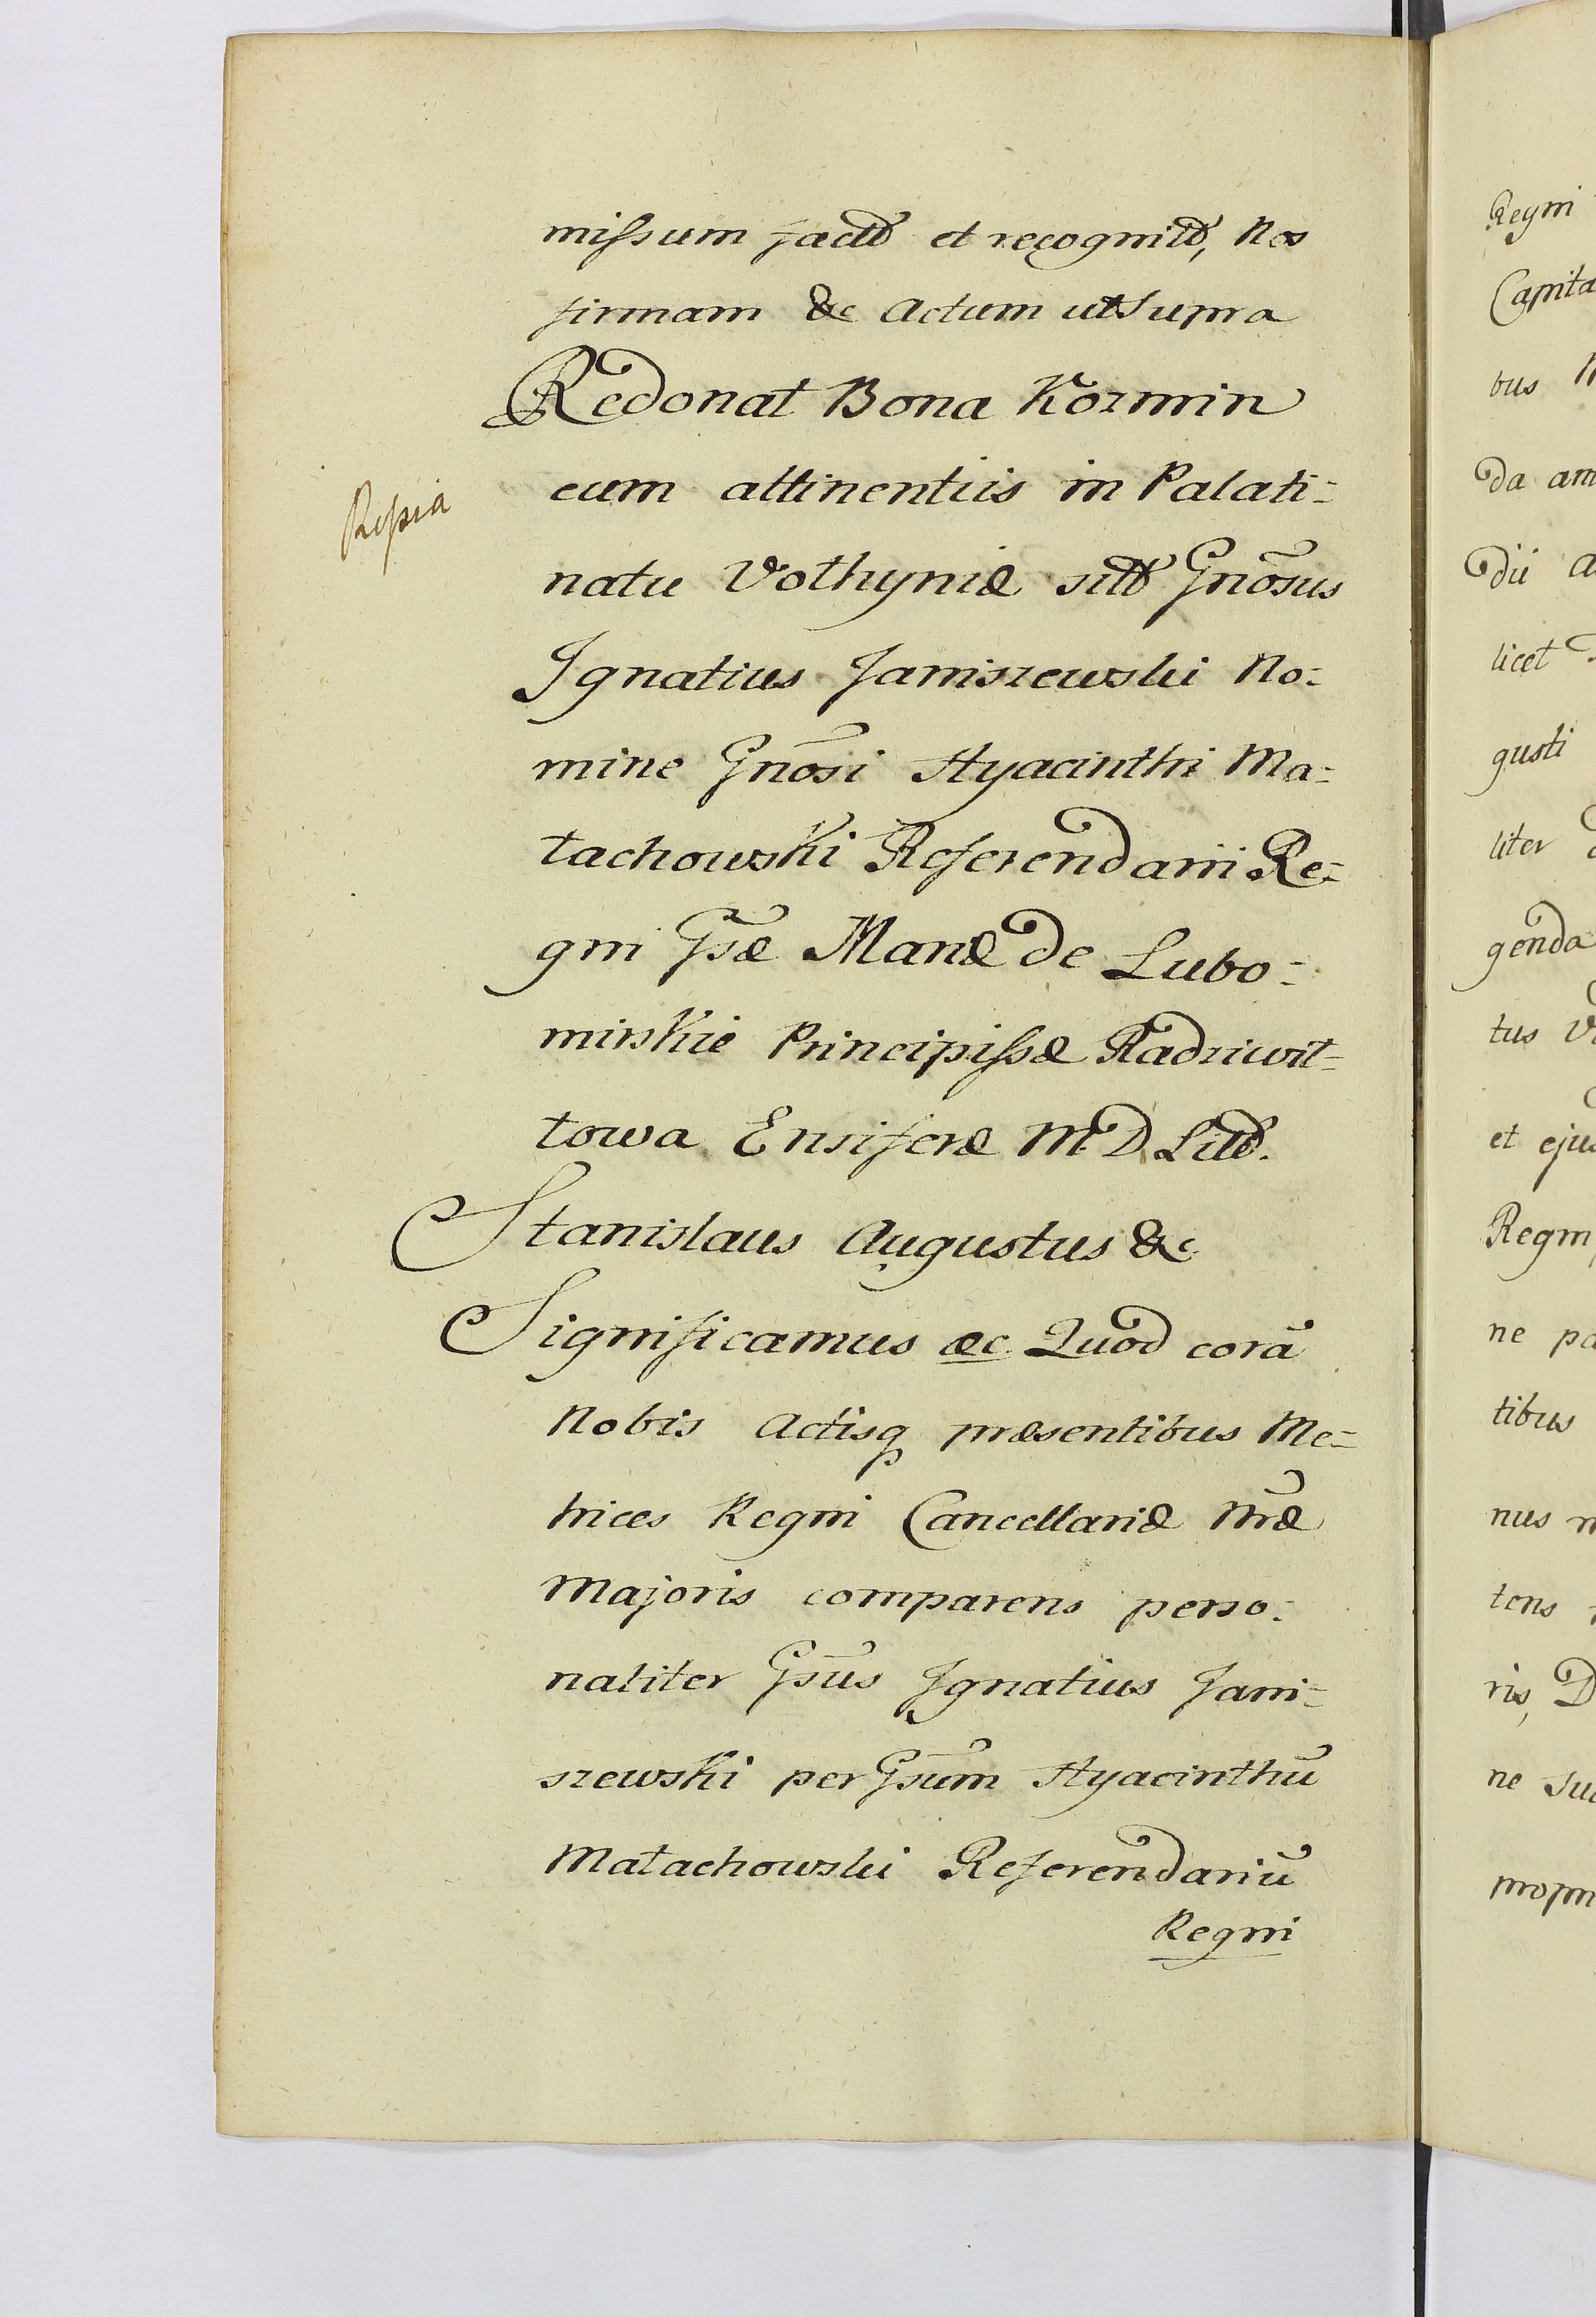 missum factῶ et recognitῶ, Nos
firmam &c Actum ut Supra
Redonat Bona Kozmin
cum attinentiis in Palati=
Rpsia
natu Vołhyniæ sitῶ Gnõsus
Ignatius Janiszewski No=
mine Gnõsi Hyacinthi Ma=
łachowski Referendarii Re=
gni Gsæ Mariæ de Lubo=
mirskie Principissæ Radziwił=
łowa Ensiferæ M. D. Litῶ.
Stanislaus Augustus &c
Significamus &c Quod corã
Nobis Actisq præsentibus Me=
trices Regni Cancellariæ Nræ
Majoris comparens perso=
naliter Gsũs Ignatius Jani=
szewski per Gsũm Hyacinthũ
Małachowski Referendariũ
Regni
Regni
Capita
bus
da am
dii
licet
gusti
liter
genda
tus
et eju
Regni
ne pa
tibus
nus
tens
ris, D
ne su
propri